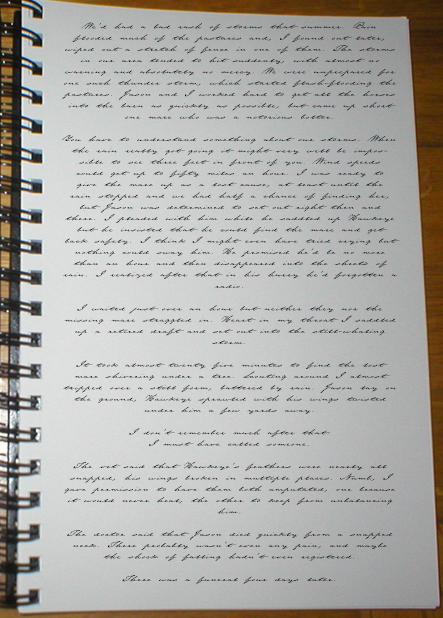 We'd had a bad rash of storms that summer. Rain
flooded much of the pastures and, I found out later,
wiped out a stretch of fence in one of them. The storms
in our area tended to hit suddenly, with almost no
warning and absolutely no mercy. We were unprepared for
one such thunder storm, which started flash-flooding the
pastures. Jason and I worked hard to get all the horses
into the barn as quickly as possible, but came up short
one mare who was a notorious bolter.
You have to understand something about our storms. When
the rain really got going it might very well be impos-
sible to see three feet in front of you. Wind speeds
could get up to fifty miles an hour. I was ready to
give the mare up as a lost cause, at least until the
rain stopped and we had half a chance of finding her,
but Jason was determined to set out right then and
there. I pleaded with him while he saddled up Hawkeye
but he insisted that he could find the mare and get
back safely. I think I might even have tried crying but
nothing could sway him. He promised he'd be no more
than an hour and then disappeared into the sheets of
rain. I realized after that in his hurry he'd forgotten a
radio.
I waited just over an hour but neither they nor the
missing mare straggled in. Heart in my throat I saddled
up a retired draft and set out into the still-wailing
storm.
It took almost twenty five minutes to find the lost
mare shivering under a tree. Scouting around I almost
tripped over a still form, battered by rain. Jason lay on
the ground, Hawkeye sprawled with his wings twisted
under him a few yards away.
I don't remember much after that.
I must have called someone.
The vet said that Hawkeye's feathers were nearly all
snapped, his wings broken in multiple places. Numb, I
gave permission to have them both amputated, one because
it would never heal, the other to keep from unbalancing
him.
The doctor said that Jason died quickly from a snapped
neck. There probably wasn't even any pain, and maybe
the shock of falling hadn't even registered.
There was a funeral four days later.